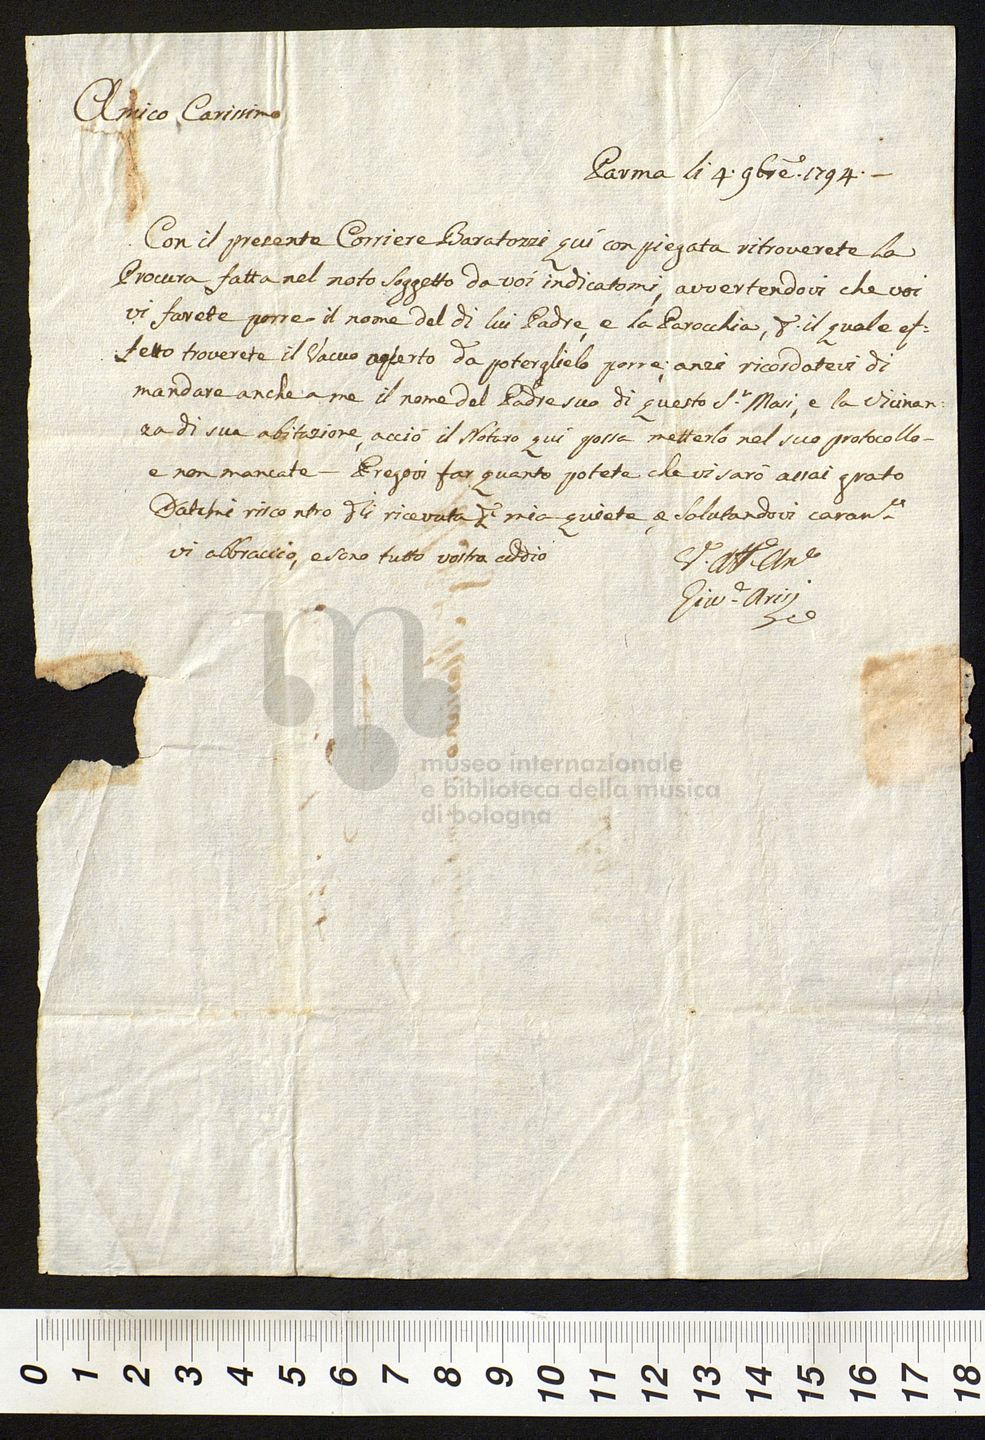 Amico Carissimo
Parma li 4. 9bre. 1794. –
Con il presente Corriere Baratozzi qui compiegata ritroverete la
Procura fatta nel noto Soggetto da voi indicatomi, avvertendovi che voi
vi farete porre il nome del di lui Padre, e la Parocchia, il quale ef=
fetto troverete il Vacuo aperto da poterglielo porre; anzi ricordatevi di
mandare anche a me il nome del Padre suo di questo S.r Masi, e la Vicinan=
za di sua abitazione, acciò il Notaro qui possa metterlo nel suo protocollo –
e non mancate – Pregovi far quanto potete che vi sarò assai grato
Datemi riscontro ricevuta mia quiete, e Salutandovi
vi abbraccio, e sono tutto vostro addio
V. Aff. Am.o
museo internazionale
e biblioteca della musica
di bologna
0 1 2 3 4 5 6 7 8 9 10 11 12 13 14 15 16 17 18